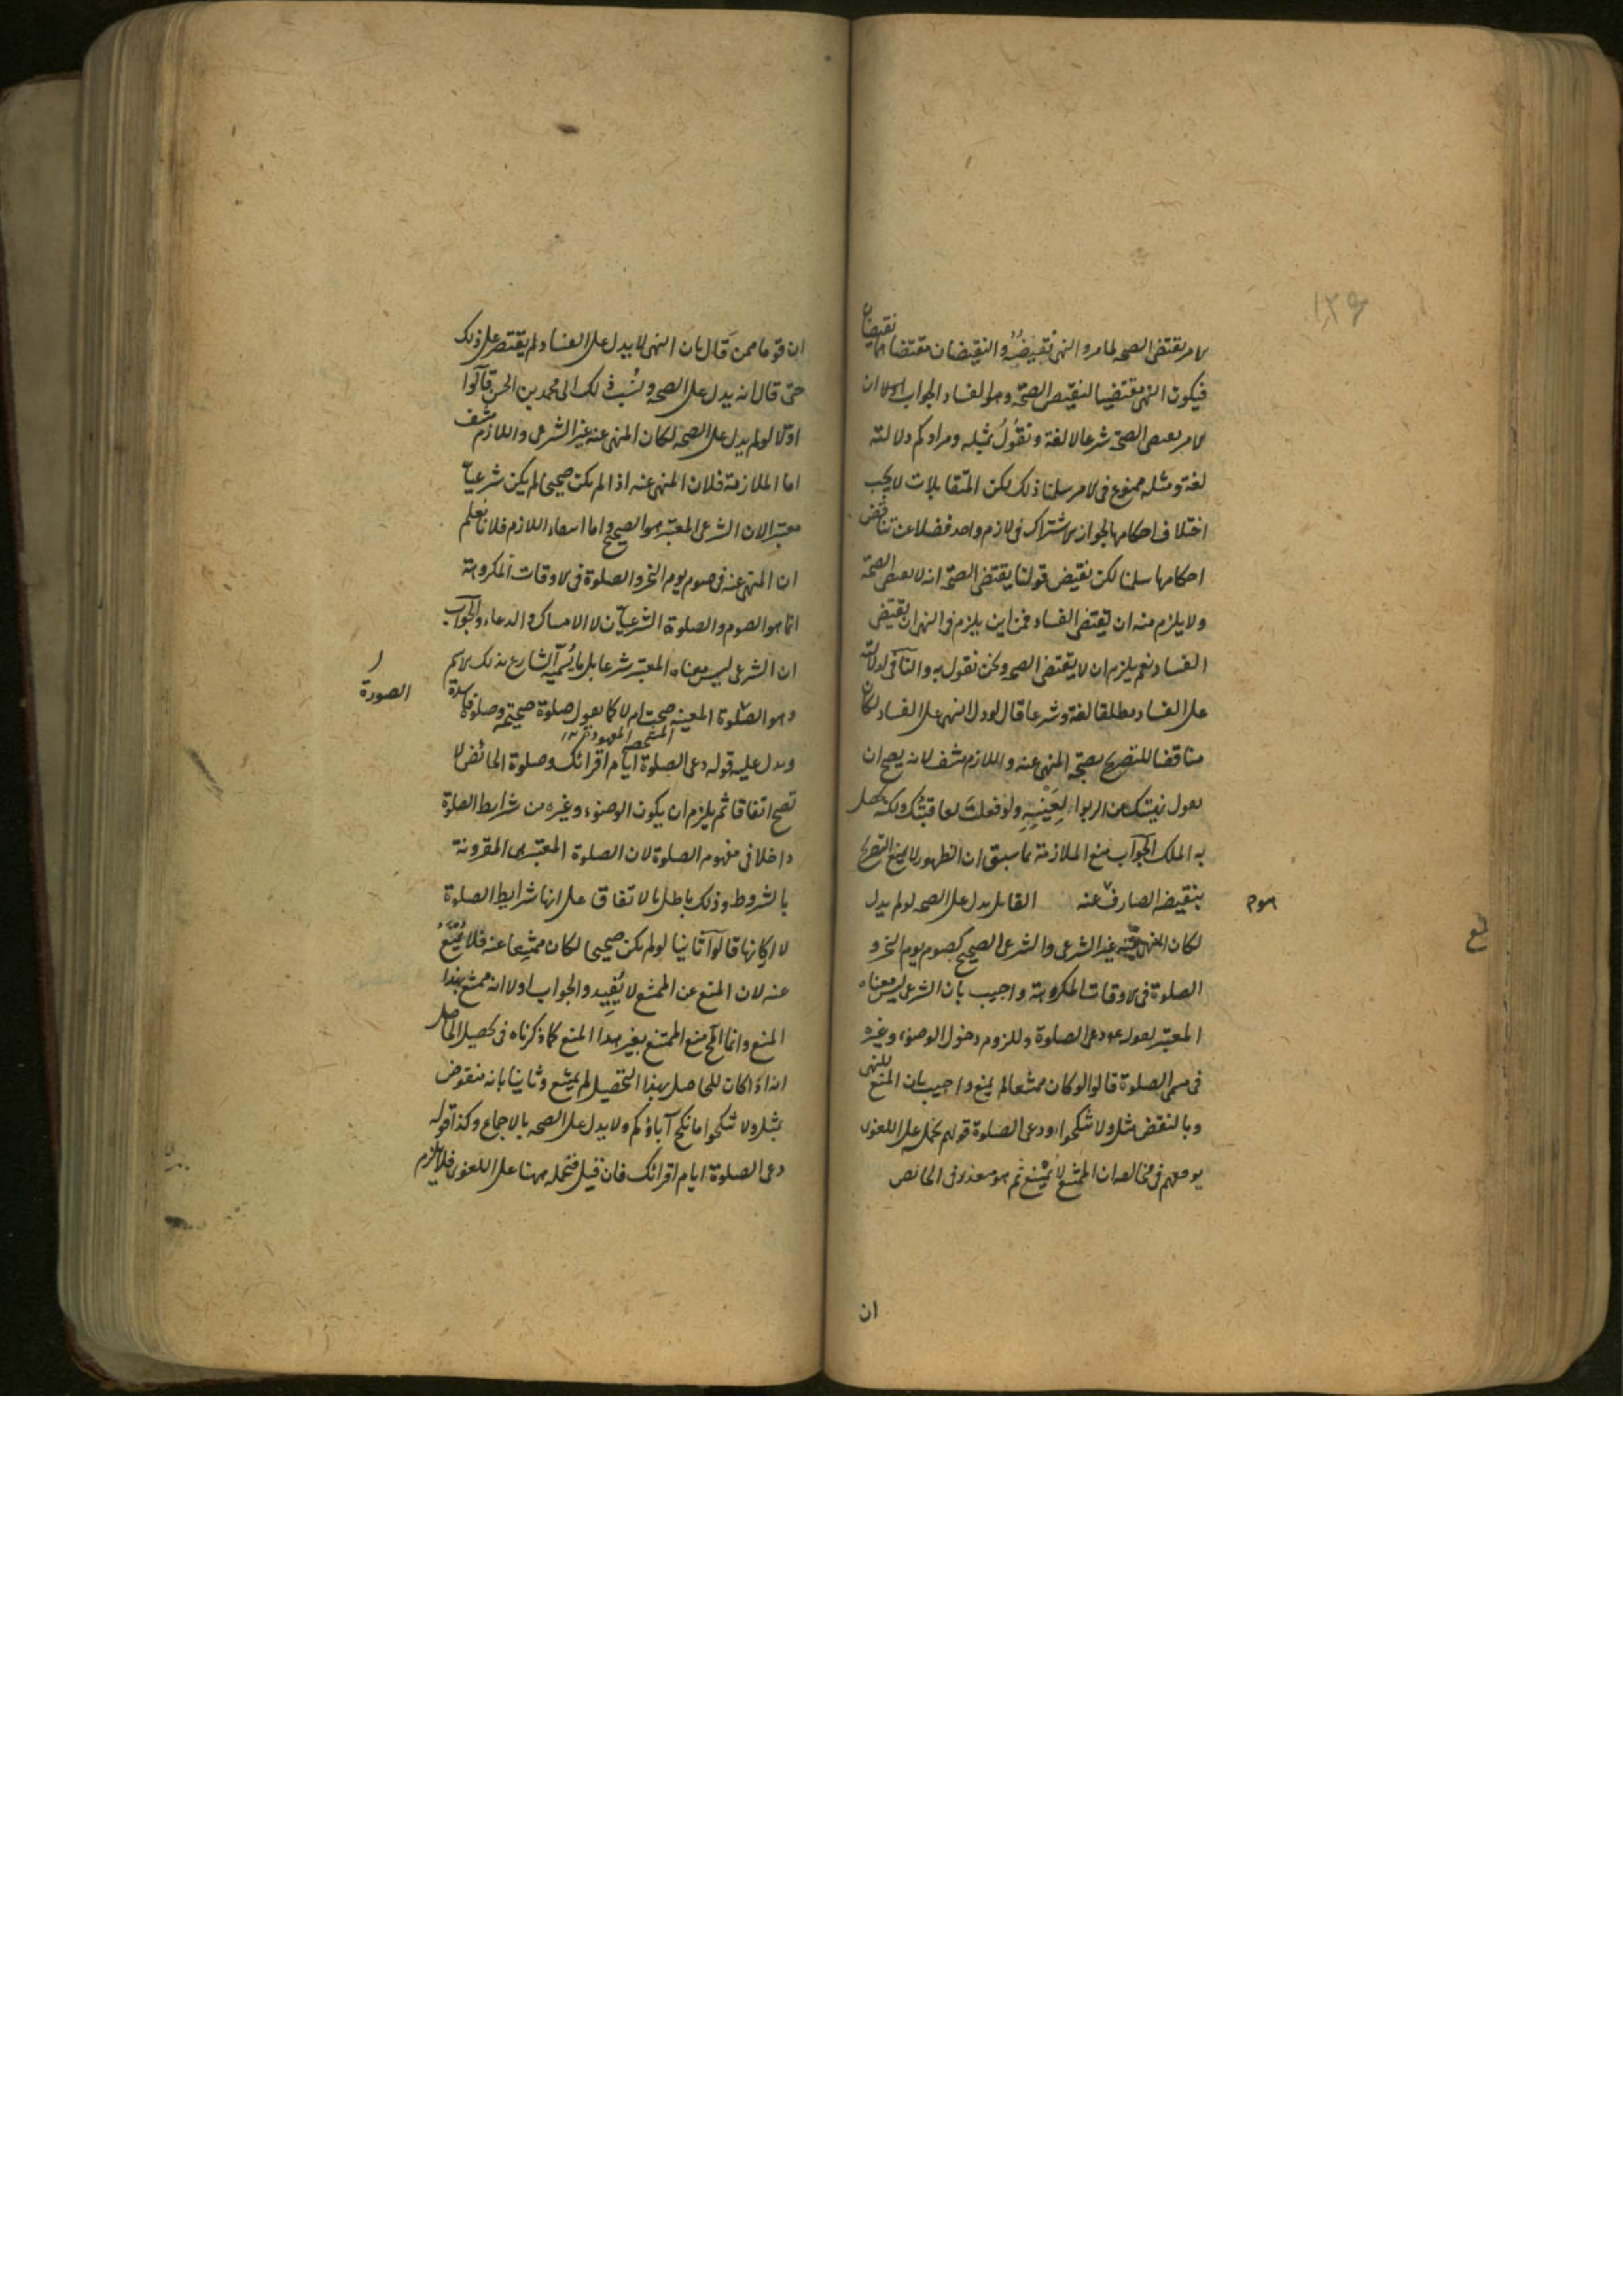 ۱۲۶
الامر يقتضى الصحة لما مر والنهى نقيضُهُ والنقيضان مقتضاهما نقيضان
فيكون النهى مقتضيا لنقيض الصحة وهو الفساد الجواب اولا ان
الامر يقتضى الصحة شرعا لا لغة ونقُولُ بمثله ومرادكم دلالته
لغة ومثله ممنوع فى الامر سلمنا ذلك لكن المتقابلات لا يجب
اختلاف احكامها لجواز الاشتراك فى لازم واحد فضلا عن تناقض
احكامها سلمنا لكن نقيض قولنا يقتضى الصحة انه لا يقتضى الصحة
ولا يلزم منه ان يقتضى الفساد فمن اين يلزم فى النهى ان يقتضى
الفساد نعم يلزم ان لا يقتضى الصحة ونحن نقول به والنافى لدلالته
على الفساد مطلقا لغة وشرعا قال لو دل النهى على الفساد لكان
مناقضا للتصريح بصحة المنهى عنه واللازم منتف لانه يصح ان
يقول نهيتك عن الربوا لِعَيْنِهِ ولو فعلت لعاقبتُك ولكنه يحصل
به الملك الجواب منع الملازمة بما سبق ان الظهور لا يمنع التصريح
بنقيضه الصارف عنه القايل يدل على الصحة لو لم يدل
لكان المنهى عنه غير الشرعى والشرعى الصحيح كصوم يوم النحر و
الصلوة فى الاوقات المكروهة واجيب بان الشرعى ليس معناه
المعتبر لقوله دعى الصلوة وللزوم دخول الوضوء وغيره
فى مسمى الصلوة قالوا لو كان ممتنعا لم يمنع واجيب بان المنع للنهى
وبالنقض بمثل ولا تنكحوا ودعى الصلوة قولهم نحمله على اللغوى
يوقعهم فى مخالفة ان الممتنع لا يُمْنَع ثم هو متعذر فى الحائض
ان
ان قوما ممن قال بان النهى لا يدل على الفساد لم يقتصر على ذلك
حتى قال انه يدل على الصحة ونُسب ذلك الى محمد بن الحسن قالوا
اولا لو لم يدل على الصحة لكان المنهى عنه غير الشرعى واللازم منتف
اما الملازمة فلان المنهى عنه اذا لم يكن صحيحا لم يكن شرعيا
معتبرا لان الشرعى المعتبر هو الصحيح واما انتفاء اللازم فلانا نعلم
ان المنهى عنه فى صوم يوم النحر والصلوة فى الاوقات المكروهة
انما هو الصوم والصلوة الشرعيان لا الامساك والدعاء والجواب
ان الشرعى ليس معناه المعتبر شرعا بل ما يُسميه الشارع بذلك الاسم
الصورة
وهو الصلوة المعينة صحت ام لا كما يقول صلوة صحيحة وصلوة فاسدة
ويدل عليه قوله دعى الصلوة ايام اقرائك وصلوة الحائض لا
تصح اتفاقا ثم يلزم ان يكون الوضوء وغيره من شرايط الصلوة
داخلا فى مفهوم الصلوة لان الصلوة المعتبرة هى المقرونة
بالشروط وذلك باطل بالاتفاق على انها شرايط الصلوة
لا اركانها قالوا ثانيا لو لم يكن صحيحا لكان ممتنعا عنه فلا يُمْنَعُ
عنه لان المنع عن الممتنع لا يُفِيد والجواب اولا انه ممتنع بهذا
المنع وانما المح منع الممتنع بغير هذا المنع كما ذكرناه فى تحصيل الحاصل
انه اذا كان للحاصل بهذا التحصيل لم يمتنع وثانيا بانه منقوض
بمثل ولا تنكحوا ما نكح آباؤكم ولا يدل على الصحة بالاجماع وكذا قوله
دعى الصلوة ايام اقرائك فان قيل فنحمله ههنا على اللغوى فلا يلزم